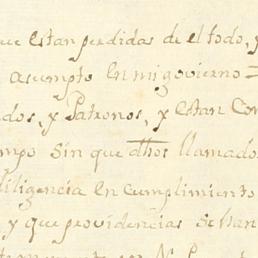 que estan perdidas de el todo, y
asumpto en mi govierno =
dos, y Patronos, y estan Con
mpo sin que dhos llamados
diligencia en cumplimiento
y que providencias se han